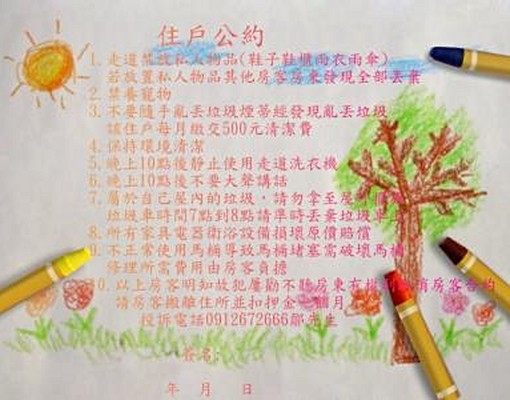 住戶公約
1. 走道禁放私人物品(鞋子鞋櫃雨衣雨傘)
若放置私人物品其他房客房東發現全部丟棄
2. 禁養寵物
3. 不要隨手亂丟垃圾煙蒂經發現亂丟垃圾
請住戶每月繳交500元清潔費
4. 保持環境清潔
5. 晚上10點後靜止使用走道洗衣機
6. 晚上10點後不要大聲講話
7. 屬於自己屋內的垃圾，請勿拿至屋
垃圾車時間7點到8點請準時丟棄垃圾車
8. 所有家具電器衛浴設備損壞原價賠償
9. 不正常使用馬桶導致馬桶堵塞需破壞馬桶
修理所需費用由房客負擔
10. 以上房客明知故犯屢勸不聽房東有權 有房客合約
請房客搬離住所並扣押金 個月
投訴電話0912672666鄒先生
簽名:
年 月 日